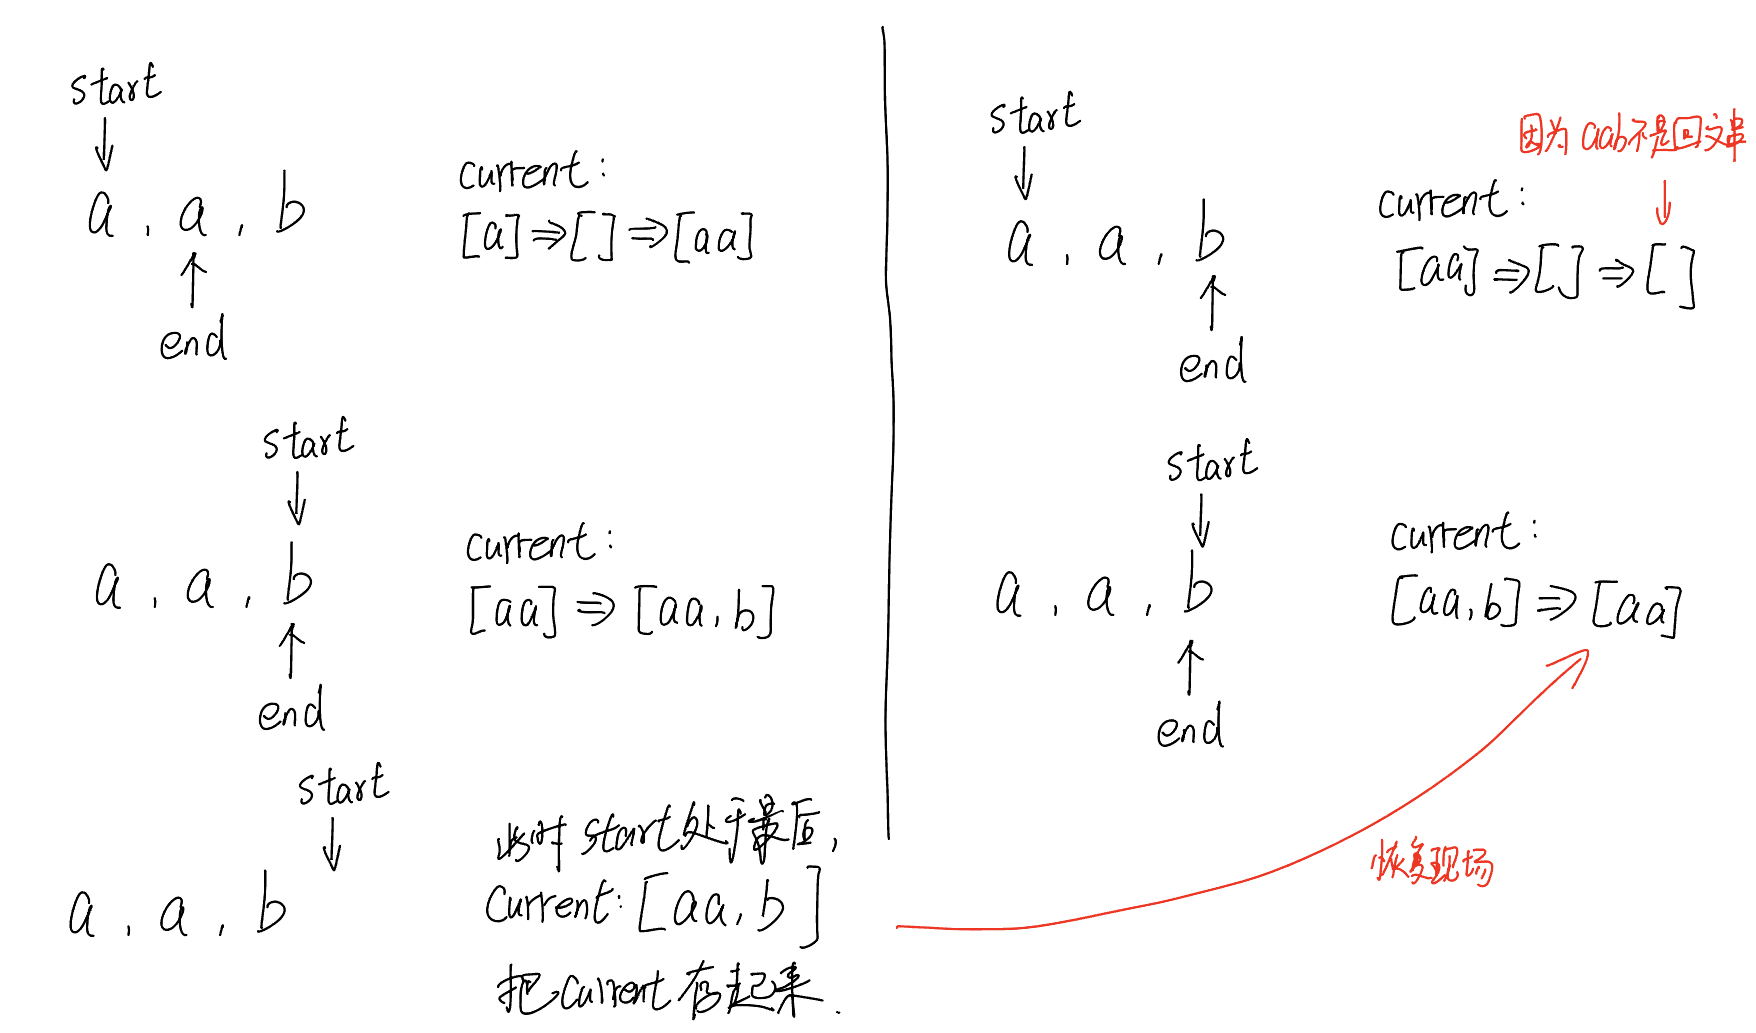 start
↓
a , a , b
↑
end
current:
[a]⇒[ ]⇒[aa]
start
↓
a , a , b
↑
end
current:
[aa] ⇒ [aa, b]
start
↓
a , a , b
此时 start处于最后,
Current: [aa, b]
把Current存起来.
start
↓
a , a , b
↑
end
因为 aab不是回文串
↓
current:
[aa] ⇒[ ] ⇒[ ]
start
↓
a , a , b
↑
end
current:
[aa, b] ⇒ [aa]
恢复现场